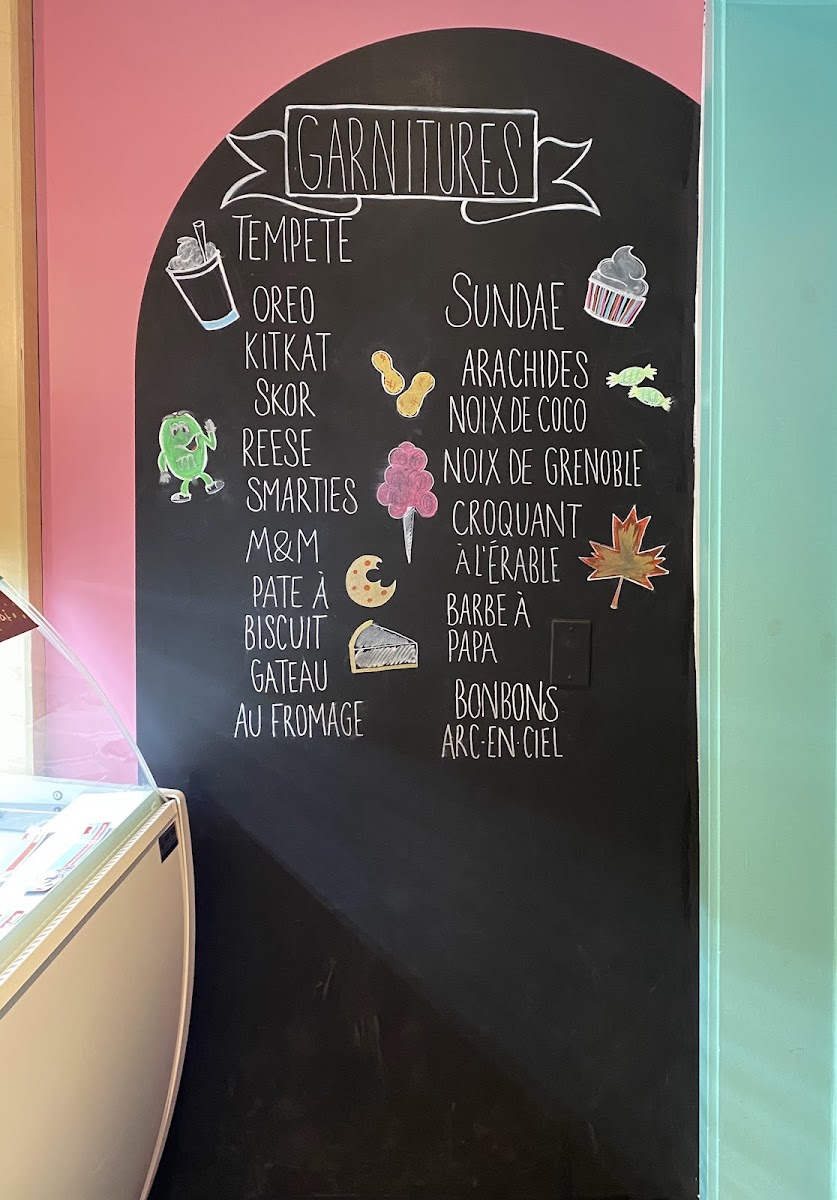 GARNITURES
TEMPETE
OREO
KITKAT
SKOR
REESE
SMARTIES
M&M
PATE À
BISCUIT
GATEAU
AU FROMAGE
SUNDAE
ARACHIDES
NOIX DE COCO
NOIX DE GRENOBLE
CROQUANT
À L'ÉRABLE
BARBE À
PAPA
BONBONS
ARC-EN-CIEL
m